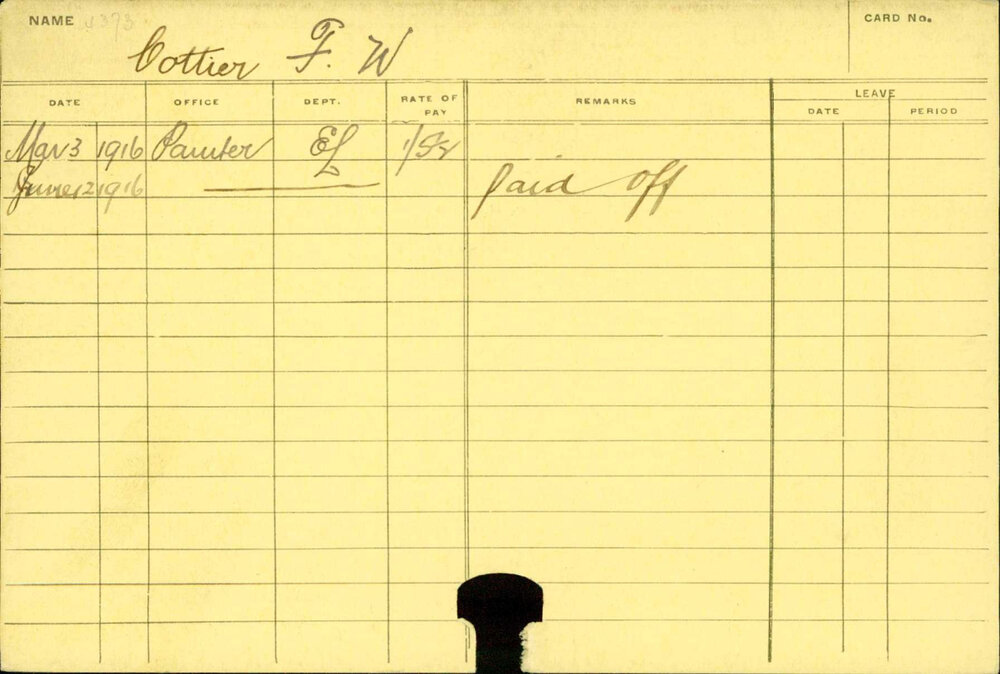 NAME CARD No.
Cottier F. W
LEAVE
DATE OFFICE DEPT. RATE OF PAY REMARKS DATE PERIOD
Mar 3 1916 Painter EL
June 12 1916 Paid off